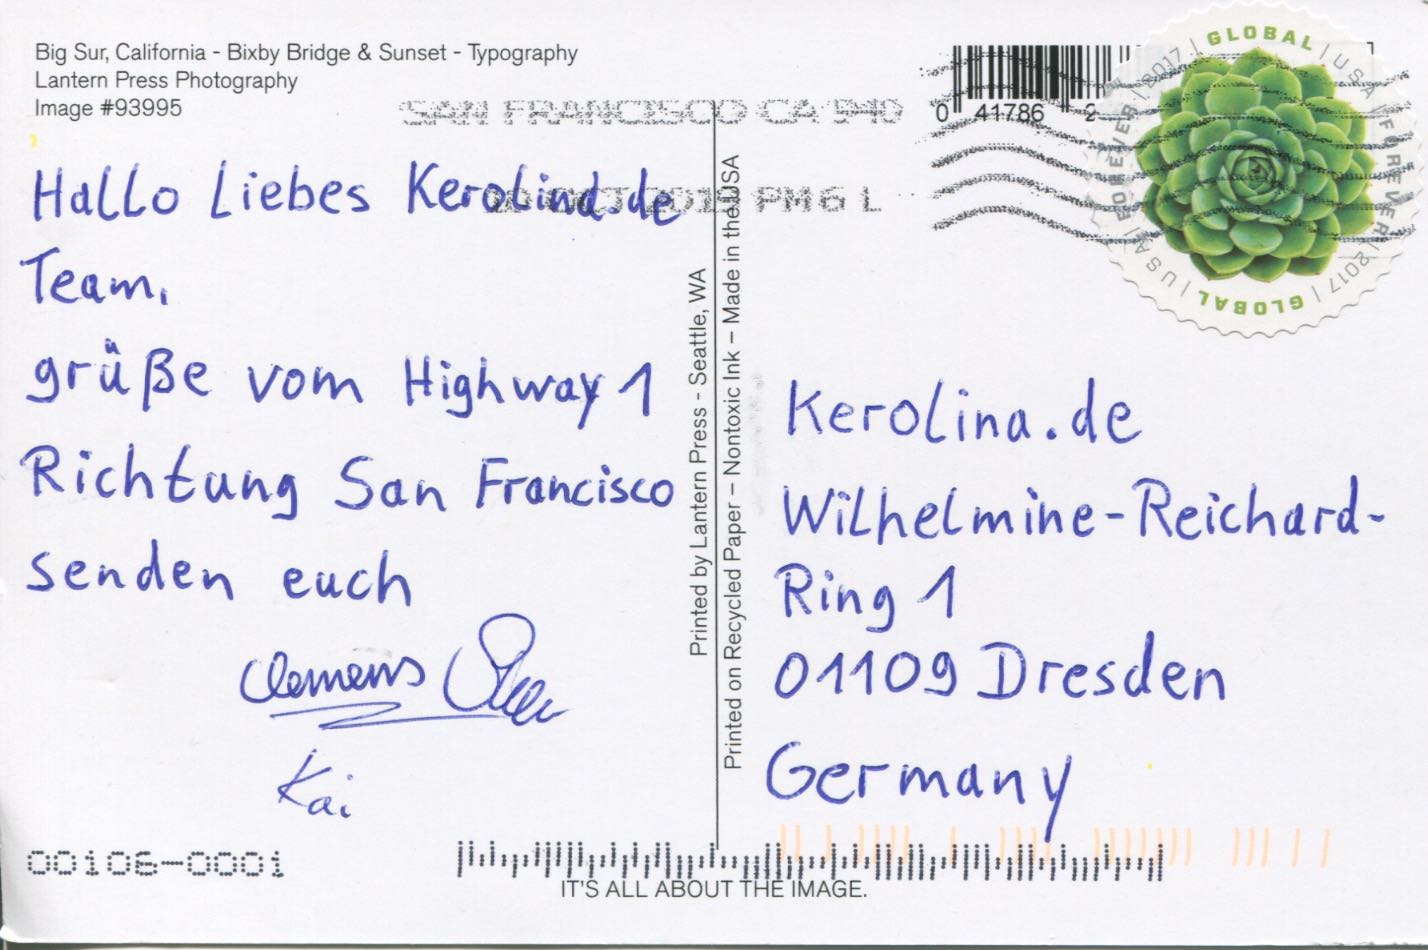 Big Sur, California - Bixby Bridge & Sunset - Typography
Lantern Press Photography
Image #93995
SAN FRANCISCO CA 940
PM 6 L
0 41786 2
GLOBAL | USA | FOREVER | 2017 | GLOBAL | USA | FOREVER | 2017
Hallo Liebes Kerolina.de
Team,
grüße vom Highway 1
Richtung San Francisco
senden euch
Clemens
Kai
Printed by Lantern Press - Seattle, WA
Printed on Recycled Paper – Nontoxic Ink – Made in the USA
Kerolina.de
Wilhelmine-Reichard-
Ring 1
01109 Dresden
Germany
00106-0001
IT'S ALL ABOUT THE IMAGE.